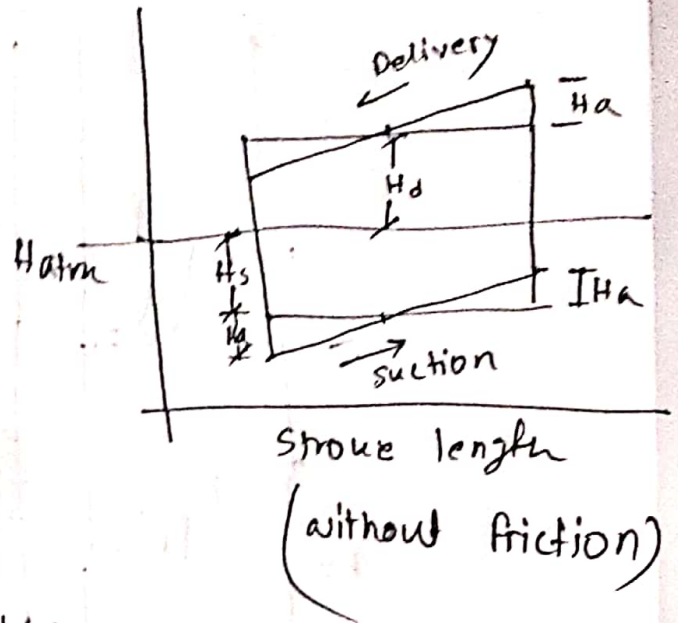 Delivery
Ha
Hd
Hatm
Hs
Ha
Ha
suction
Stroke length
(without friction)